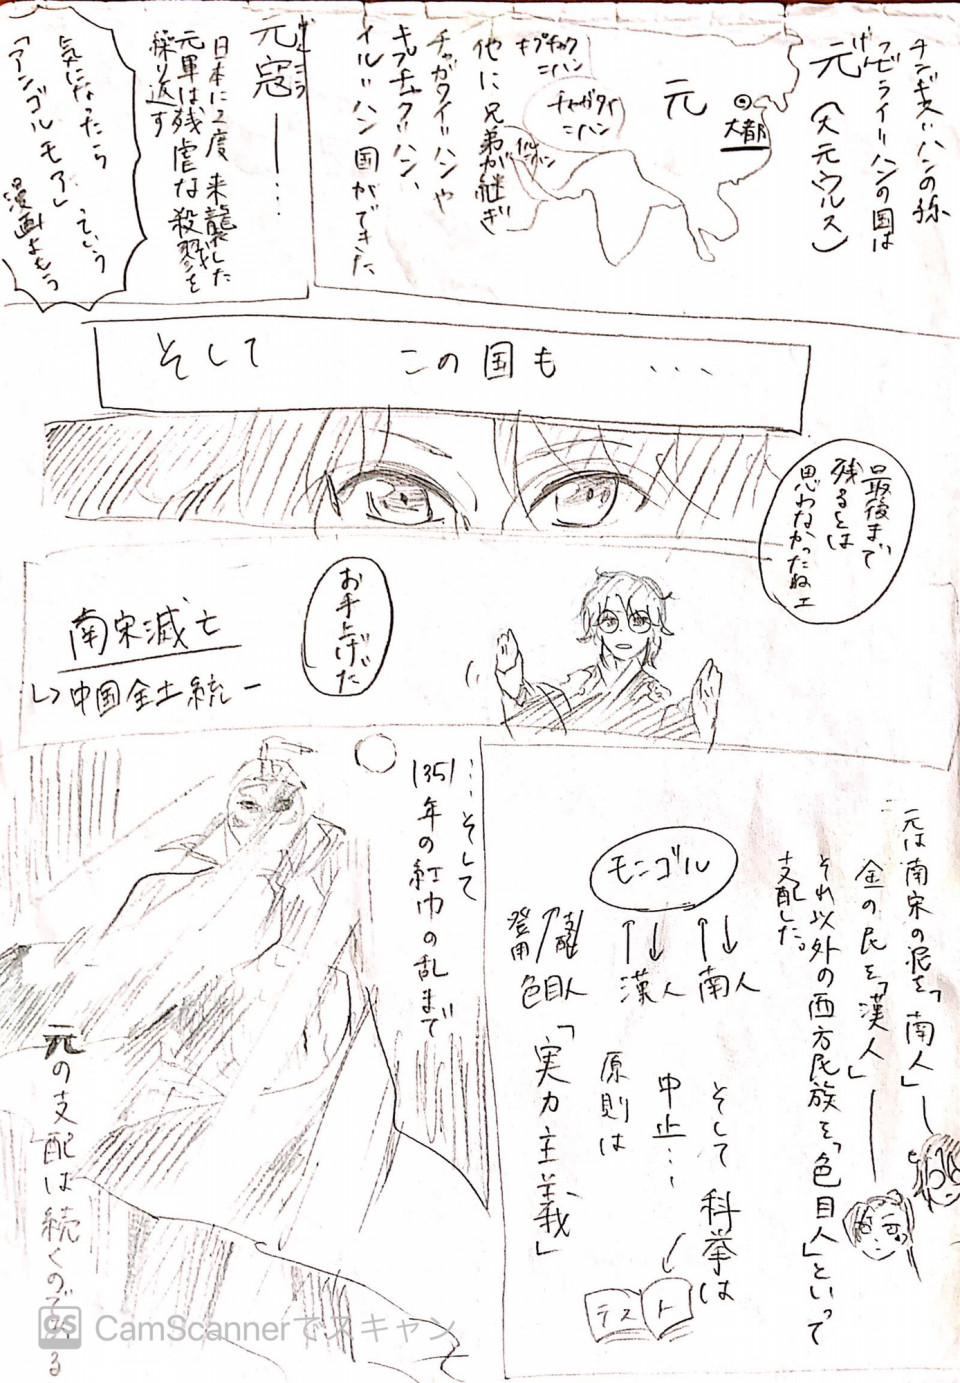 チンギス=ハンの孫
フビライ=ハンの国は
げん
元(大元ウルス)
大都
元
キプチャク
=ハン
チャガタイ
=ハン
イル=
ハン
他に兄弟が継ぎ
チャガタイ=ハンや
キプチャク=ハン、
イル=ハン国ができた
げんこう
元寇――…
日本に2度来襲した
元軍は残虐な殺戮を
繰り返す
気になったら
「アンゴルモア」という
漫画よもう
そして この国も ...
最後まで
残るとは
思わなかったねェ
お手上げだ
南宋滅亡
↳中国全土統一
元は南宋の民を「南人」
金の民を「漢人」
それ以外の西方民族を「色目人」といって
支配した。
モンゴル
登用 支配
色目人 漢人 南人
そして 科挙は
中止…
テスト
原則は
「実力主義」
…そして
1351年の紅巾の乱まで
元の支配は続くのである
CS CamScannerでスキャン